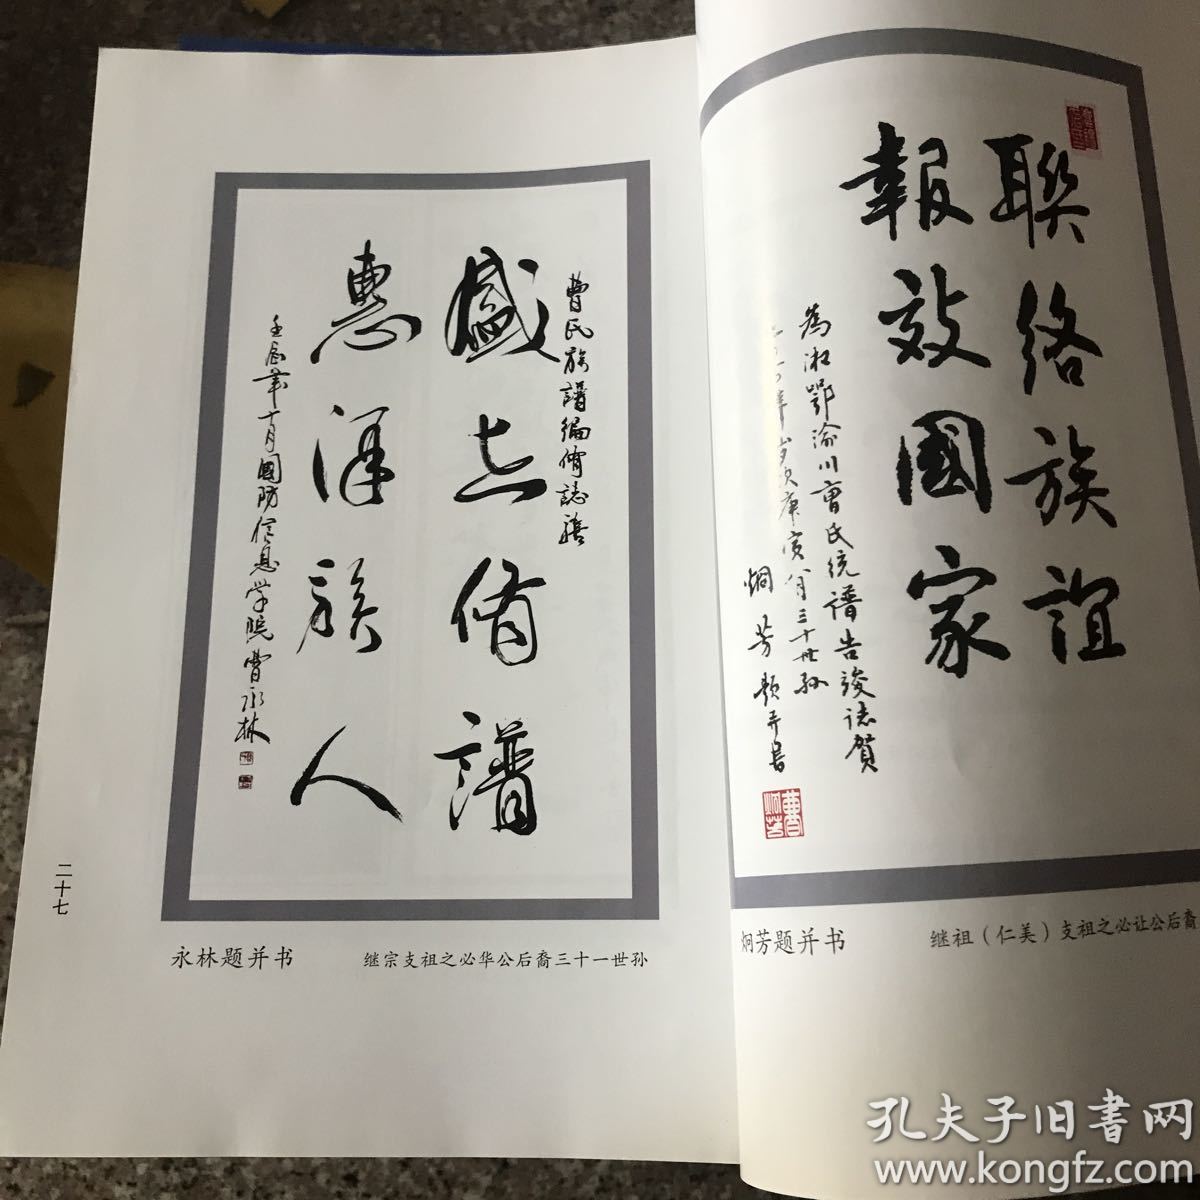 曹氏族譜编脩誌禧
盛世脩譜
惠澤族人
壬辰年十月國防信息学院曹永林
永林题并书
继宗支祖之必华公后裔三十一世孙
二十七
聯络族誼
報效國家
為湘鄂渝川曹氏统譜告竣志賀
年岁次庚寅八月三十世孙
炯芳题并書
曹炯芳
炯芳题并书
继祖（仁美）支祖之必让公后裔
孔夫子旧书网
www.kongfz.com